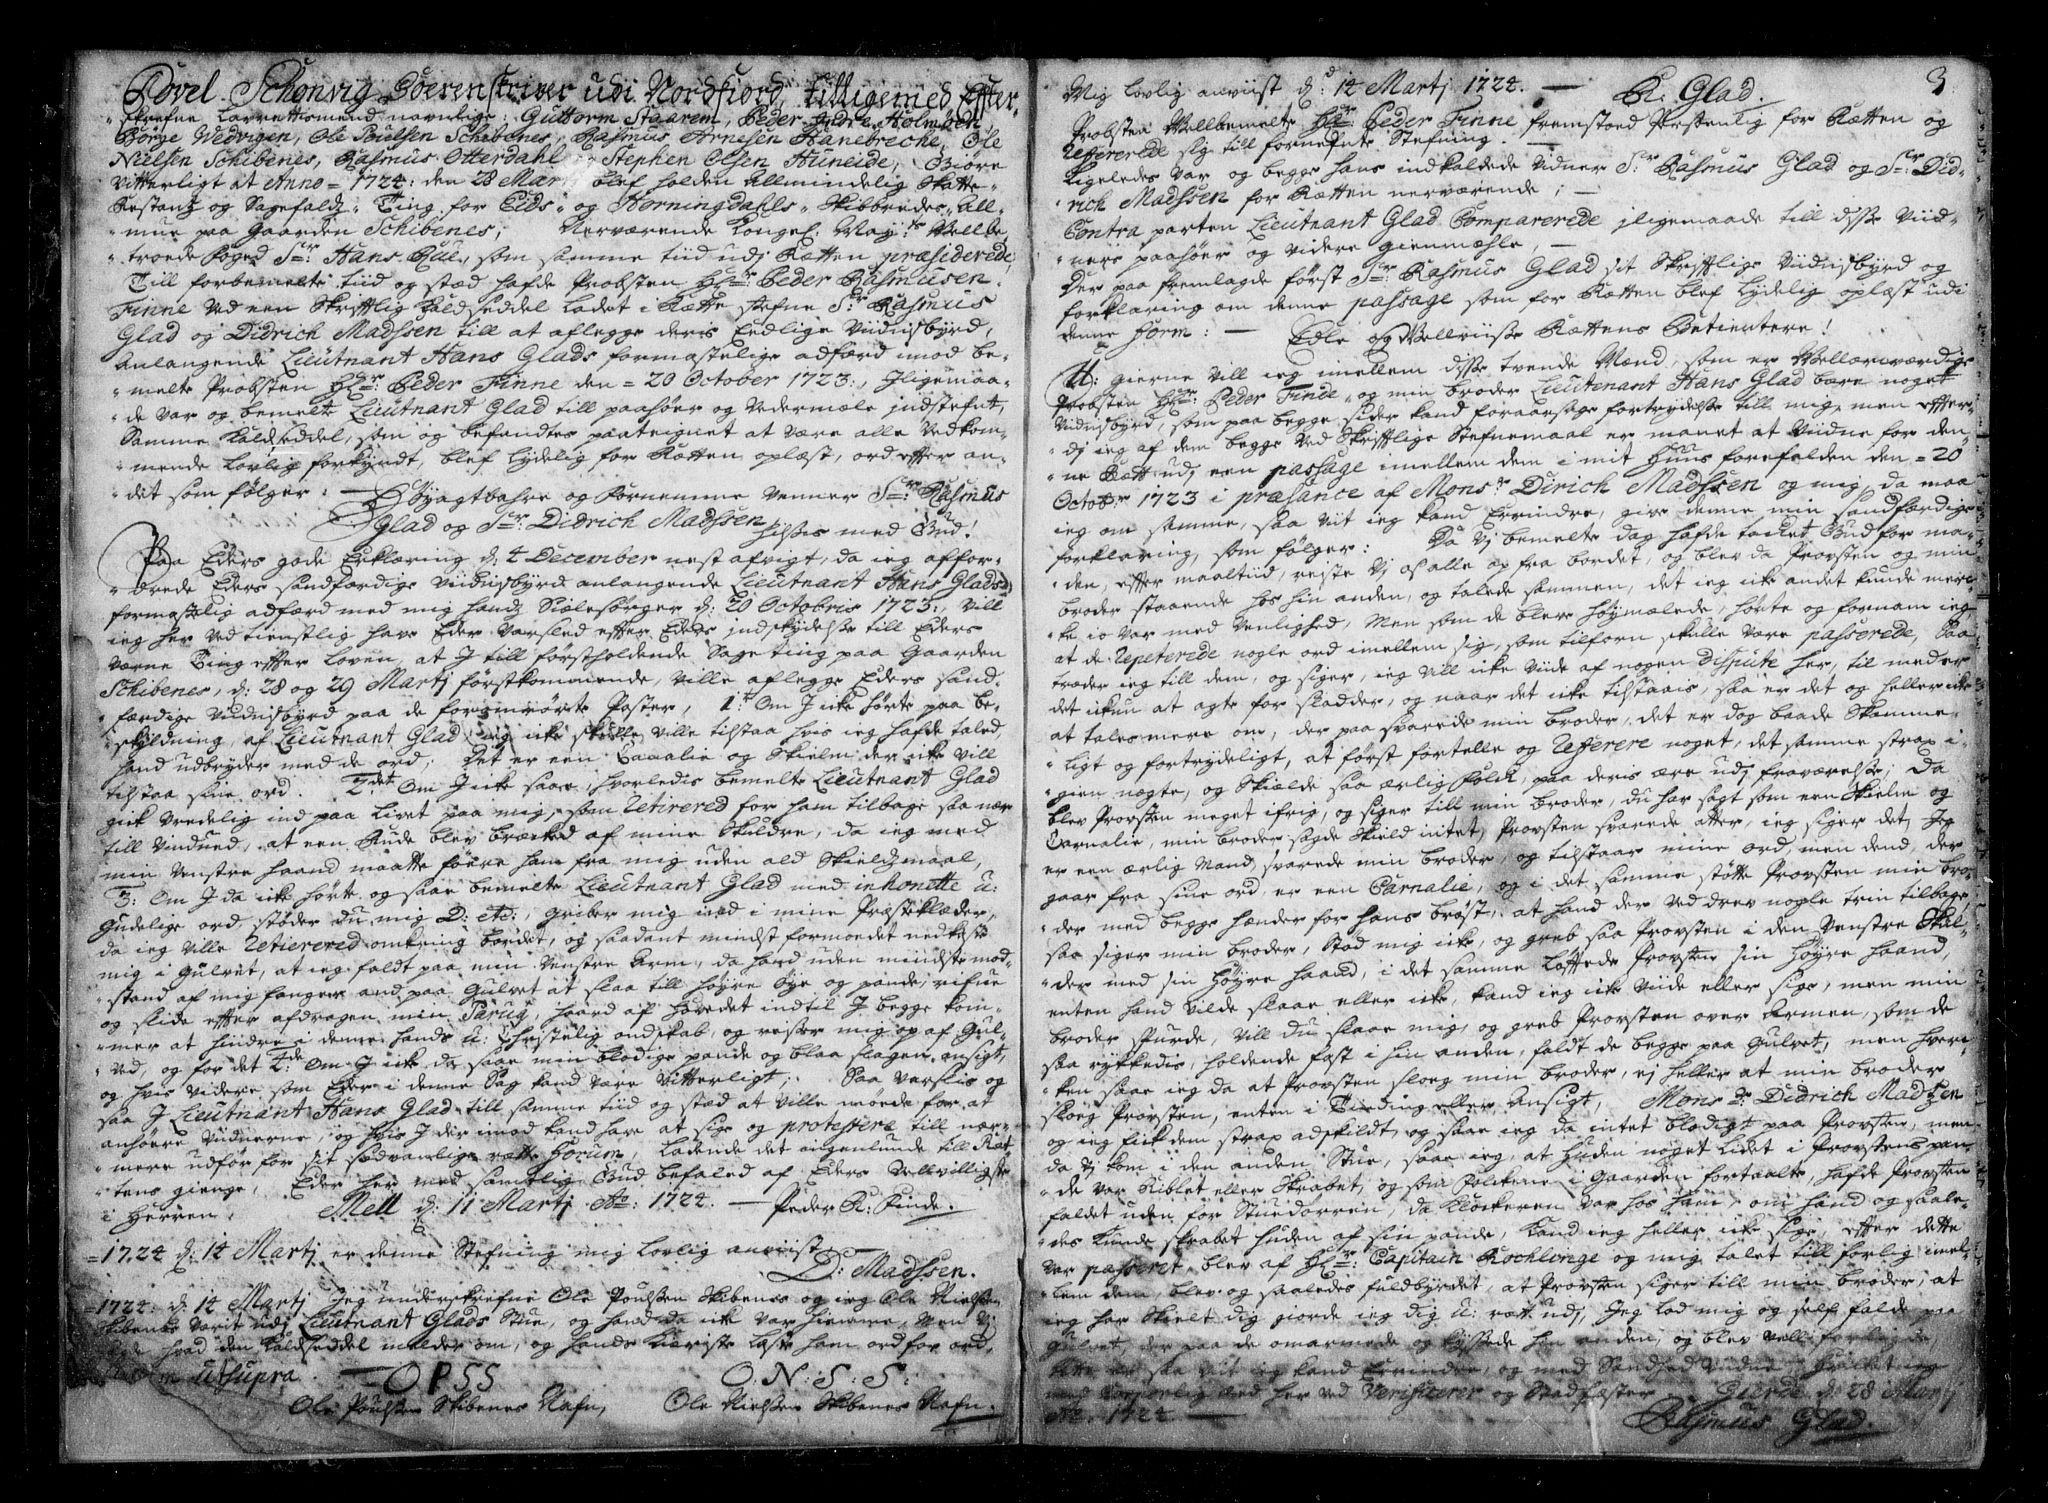 Povel Schonvig Soerenskriver udi Nordfiord, tilligemed Efter-
skrefne Laurettesmend navnlige: Guttorm Staarem, Peder Indre Holmøen
Børge Wedvigen, Ole Poulsen Schibenes, Rasmus Arnesen Hanebreche, Ole
Nielsen Schibenes, Rasmus Otterdahl, Stephen Olsen Huneide, Giøre
Vitterligt at Anno = 1724: den 28 Martj blef holden Allmindelig Skatte-
Restantz og Sagefaldz Ting for Eids- og Horningdahls Skibbredes All-
mue paa Gaarden Schibenes, Nerværende Kongel. May:ts Vellbe-
troede Foged Sr: Hans Rue, som samme tiid udj Rætten præsiderede,
Till forbemelte tiid og stæd hafde Probsten Hr: Peder Rasmusen
Finne ved een Skrifftlig Kaldseddel ladet i Rætte stefne Sr: Rasmus
Glad og Didrich Madssen till at aflegge deris Eedlige Vidnisbyrd,
Anlangende Lieutnant Hans Glads formastelige adfærd imod be-
melte Probsten Hr: Peder Finne den = 20 October 1723:, Jligemaa-
de var og bemelte Lieutnant Glad till paahøer og Vedermæle jndstefnt,
Samme Kaldseddel, som og befandtes paateignet at være alle Vedkom-
mende Lovlig forkyndt, blef lydelig for Rætten oplæst, ord effter an-
det som følger:
Høyagtbahre og Fornemme Venner Sr: Rasmus
Glad og Sr: Didrich Madssen, hilses med Gud!
Paa Eders gode Erklæring d: 4 December nest afvigt, da ieg affor-
drede Eders sandfærdige Vidnisbyrd anlangende Lieutnant Hans Glads
formastelig adfærd med mig hands Siælesørger d: 20 Octobris 1723:, Vill
ieg her ved tienstlig have Eder varsled effter Eders jndskydelse till Eders
Værne Ting effter Loven, at J till førstholdende Sage ting paa Gaarden
Schibenes, d: 28 og 29 Martj førstkommende, ville aflegge Eders sand-
færdige Vidnisbyrd paa de Poster, 1: Om J icke hørte paa be-
skyldning, af Lieutnant Glad, ieg icke skulle ville tilstaa hvis ieg hafde taled,
hand udbryder med de ord, Det er een Canalie og Skielm der icke vill
tilstaa sine ord. 2det Om J icke saae, hvorledis bemelte Lieutnant Glad
gick vredelig ind paa Livet paa mig, som Retirered for ham tilbage saa nær
till Vinduet, at een Rude blev bræcked af mine Skuldre, da ieg med
min Venstre haand maatte føere ham fra mig uden ald Skieldzmaal,
3: Om J da icke hørte og saae bemelte Lieutnant Glad med inhonette u:
Gudelige ord, støder du mig D: etc:, griber mig ind i mine Præsteklæder,
da ieg ville Retierered omkring bordet, og saadant mindst formoedet nedkaste
mig i Gulvet, at ieg faldt paa min Venstre Arm, da hand uden mindste mod-
stand af mig fanger and paa Gulvet at slaa till høyre Øye og pande, rifve
og slide effter afdragen min Paruq, haard af hovedet indtil J begge kom-
mer at hindre i denne hands u: Christelig ondskab, og reiser mig op af Gul-
ved, og for det 4de Om J icke da saae min blodige pande og blaa slagen ansigt,
og hvis videre som Eder i denne Sag kand være Vitterligt, Saa varslis og
saa J Lieutnant Hans Glad till samme tiid og stæd at ville møede for at
anhøere Vidnerne, og hvis J der imod kand have at sige og protestere till nær-
mere udfør for sit sedvanlige rætte Forum, ladende det ingenlunde till Ræt-
tens gienge, Eder her med samtlig Gud befaled af Eders Vellvilligste
i Herren, Mell d: 11 Martj Ao: 1724. Peder R: Finde.
= 1724 d: 14 Martj er denne Stefning mig lovlig anviist,
D: Madssen.
= 1724: d: 14 Martj Jeg underskrifne Ole Poulsen Skibenes og ieg Ole Nielsen
Skibenes Varit udj Lieutnant Glads Stue, og hand da icke var hiemme, Men Vj
hvad den Kaldseddel melder om, og hands Kieriste læste ham ord for ord.
Datum utsupra. O P S S O. N: S: S:
Ole Poulsen Skibenes Nafn, Ole Nielsen Skibenes Nafn.
3
Mig lovlig anviist d: 14 Martj 1724. R: Glad.
Probsten Vellbemelte Hr: Peder Finne fremstoed Persohnlig for Rætten og
Refererede sig till fornefnte Stefning.
Ligeledes var og begge hans indkaldede Vidner Sr: Rasmus Glad og Sr: Did-
rich Madssen for Rætten nerværende,
Contra parten Lieutnant Glad Comparerede jligemaade till disse Vid-
ners paahøer og videre gienmæhle,
Der paa fremlagde først Sr: Rasmus Glad sit Skrifftlige Vidnisbyrd og
forklaring om denne passage som for Rætten blef lydelig oplæst udi
denne Form: Edle og Vellviise Rættens Betientere!
U: gierne vill ieg imellem disse tvende Mænd, som er Vellærværdige
Probsten Hr: Peder Finde, og min broder Lieutenant Hans Glad bære noget
Vidnisbyrd, som paa begge sider kand foraarsage fortrydelse till mig, men effter-
dj ieg af dem begge ved Skrifftlige Stefnemaal er manet at Vidne for den-
ne Rætt udj een passage imellem dem i mit Huus forefalden den = 20
Octobr 1723 i præsance af Monsr Dirich Madssen og mig, da maa
ieg om samme, saa vit ieg kand Erindre, give denne min sandfærdige
forklaring, som følger: Da Vj bemelte dag hafde tacket Gud for ma-
den, effter maaltiid, reiste Vj os alle op fra bordet, og blev da Provsten og min
broder staaende hos hin anden, og talede sammen, det ieg icke andet kunde mer-
ke io var med Venlighed, Men som de blev høymælede, hørte og fornam ieg
at de Repeterede nogle ord imellem sig, som tilforn skulle være passerede, Saa
træder ieg till dem, og siger, ieg vill icke vide af nogen dispute her, til meder
det ickun at agte for sladder, og naar det icke tilstaais, saa er det og heller icke
at tales mere om, der paa svarede min broder, det er dog baade Skamme-
ligt og fortrydeligt, at først fortelle og Referere noget, det samme strax i-
gien nægte, og Skielde saa ærlig Folch paa deris ære udj fraværelse, Da
blev Provsten meget ifrig, og siger till min broder, du har sagt som een Skielm og
Carnalie, min broder sagde Skield intet, Provsten svarede atter, ieg siger det, Jeg
er een ærlig Mand, svarede min broder, og tilstaar mine ord, men dend, der
gaar fra sine ord, er een Carnalie, og i det samme støtte Provsten min bro-
der med begge hænder for hans brøst, at hand der ved drev nogle trin tilbage,
saa siger min broder, Stød mig icke, og greb saa Provsten i den Venstre Skul-
der med sin høyre haand, i det samme løfftede Provsten sin høyre haand,
enten hand vilde slaae eller icke, kand ieg icke vide eller sige, men min
broder spurde, vill du slaae mig, og greb Provsten over Armen, som de
saa ryckedis, holdende fast i hin anden, faldt de begge paa Gulvet, men hver-
ken saae ieg da at Provsten sloeg min broder, ej heller at min broder
sloeg Provsten, enten i Tinding eller Ansigt, Monsr: Didrich Madtzen
og ieg fick dem strax adskildt, og saae ieg da intet blodigt paa Provsten, men
da Vj kom i den anden Stue, saae ieg, at huden noget lidet i Provstens pan-
de var Kiblet eller Skrabet, og som Folckene i Gaarden fortaalte, hafde Provsten
faldet uden for Stuedørren, da Klockeren var hos ham, om hand og saale-
des kunde skrabet huden af sin pande, kand ieg heller icke sige, effter dette
var passeret, blev af Hr: Capitain Kochlenge og mig talet till forlig imel-
lem dem, blev og saaledes fuldbyrdet, at Provsten siger till min broder, at
ieg har Skielt dig giorde ieg dig u: rætt udj, Jeg lod mig og self falde paa
Gulvet, der paa de omarmede og kyssede hin anden, og blev vell forligede,
dette er saa vit ieg kand Erindre, og med Sandhed Vidne
med Corporlig eed her ved Verificerer og Stadfæster. Gierde d: 28 Martj
Ao. 1724 Rasmus Glad.